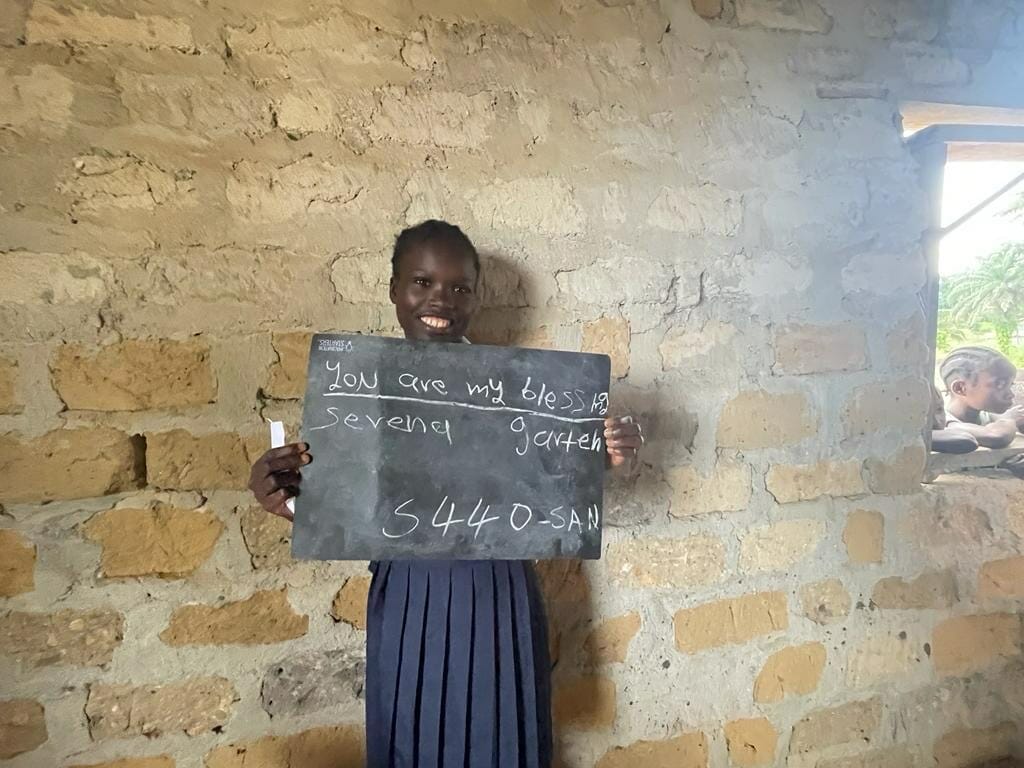 YOU are my blessing
serena garten
S440-SAN